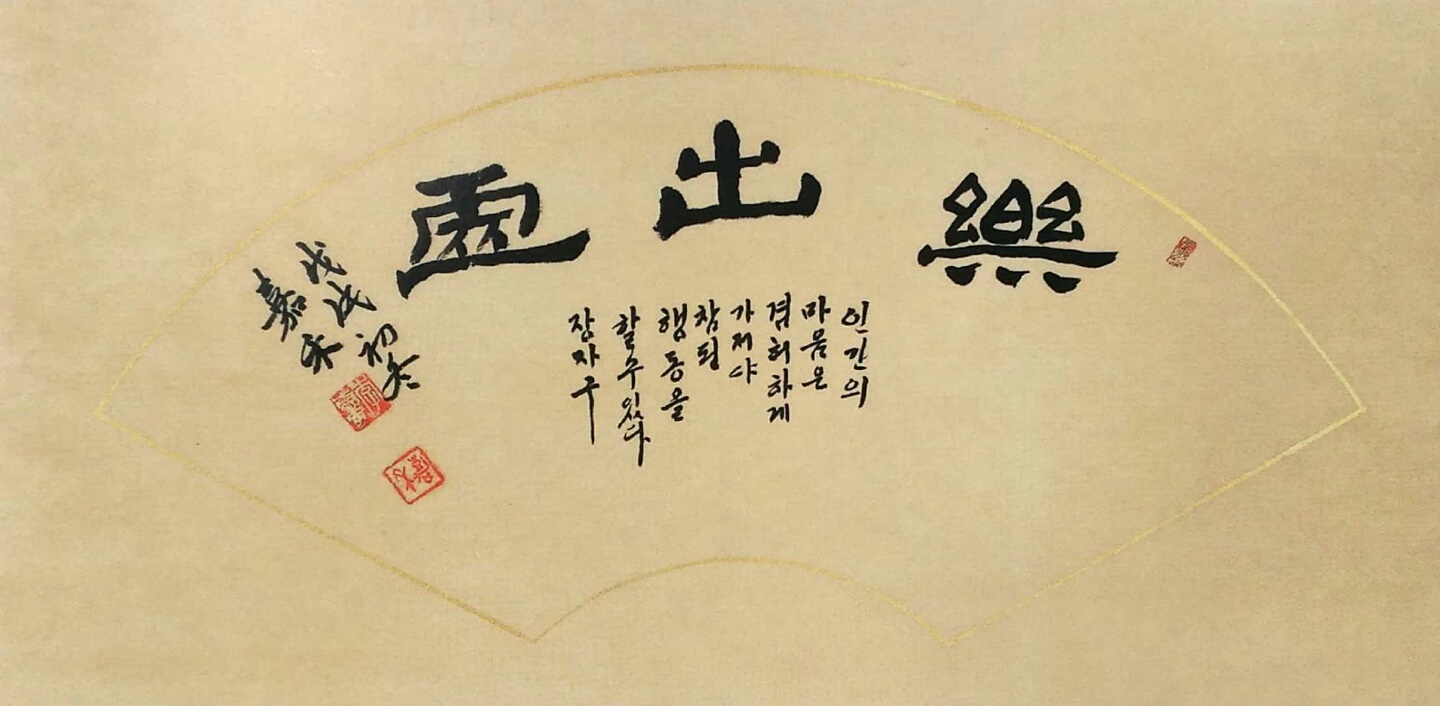 樂出虛
인간의
마음은
겸허하게
가저야
참된
행동을
할수있다
장자구
戊戌初冬
嘉禾